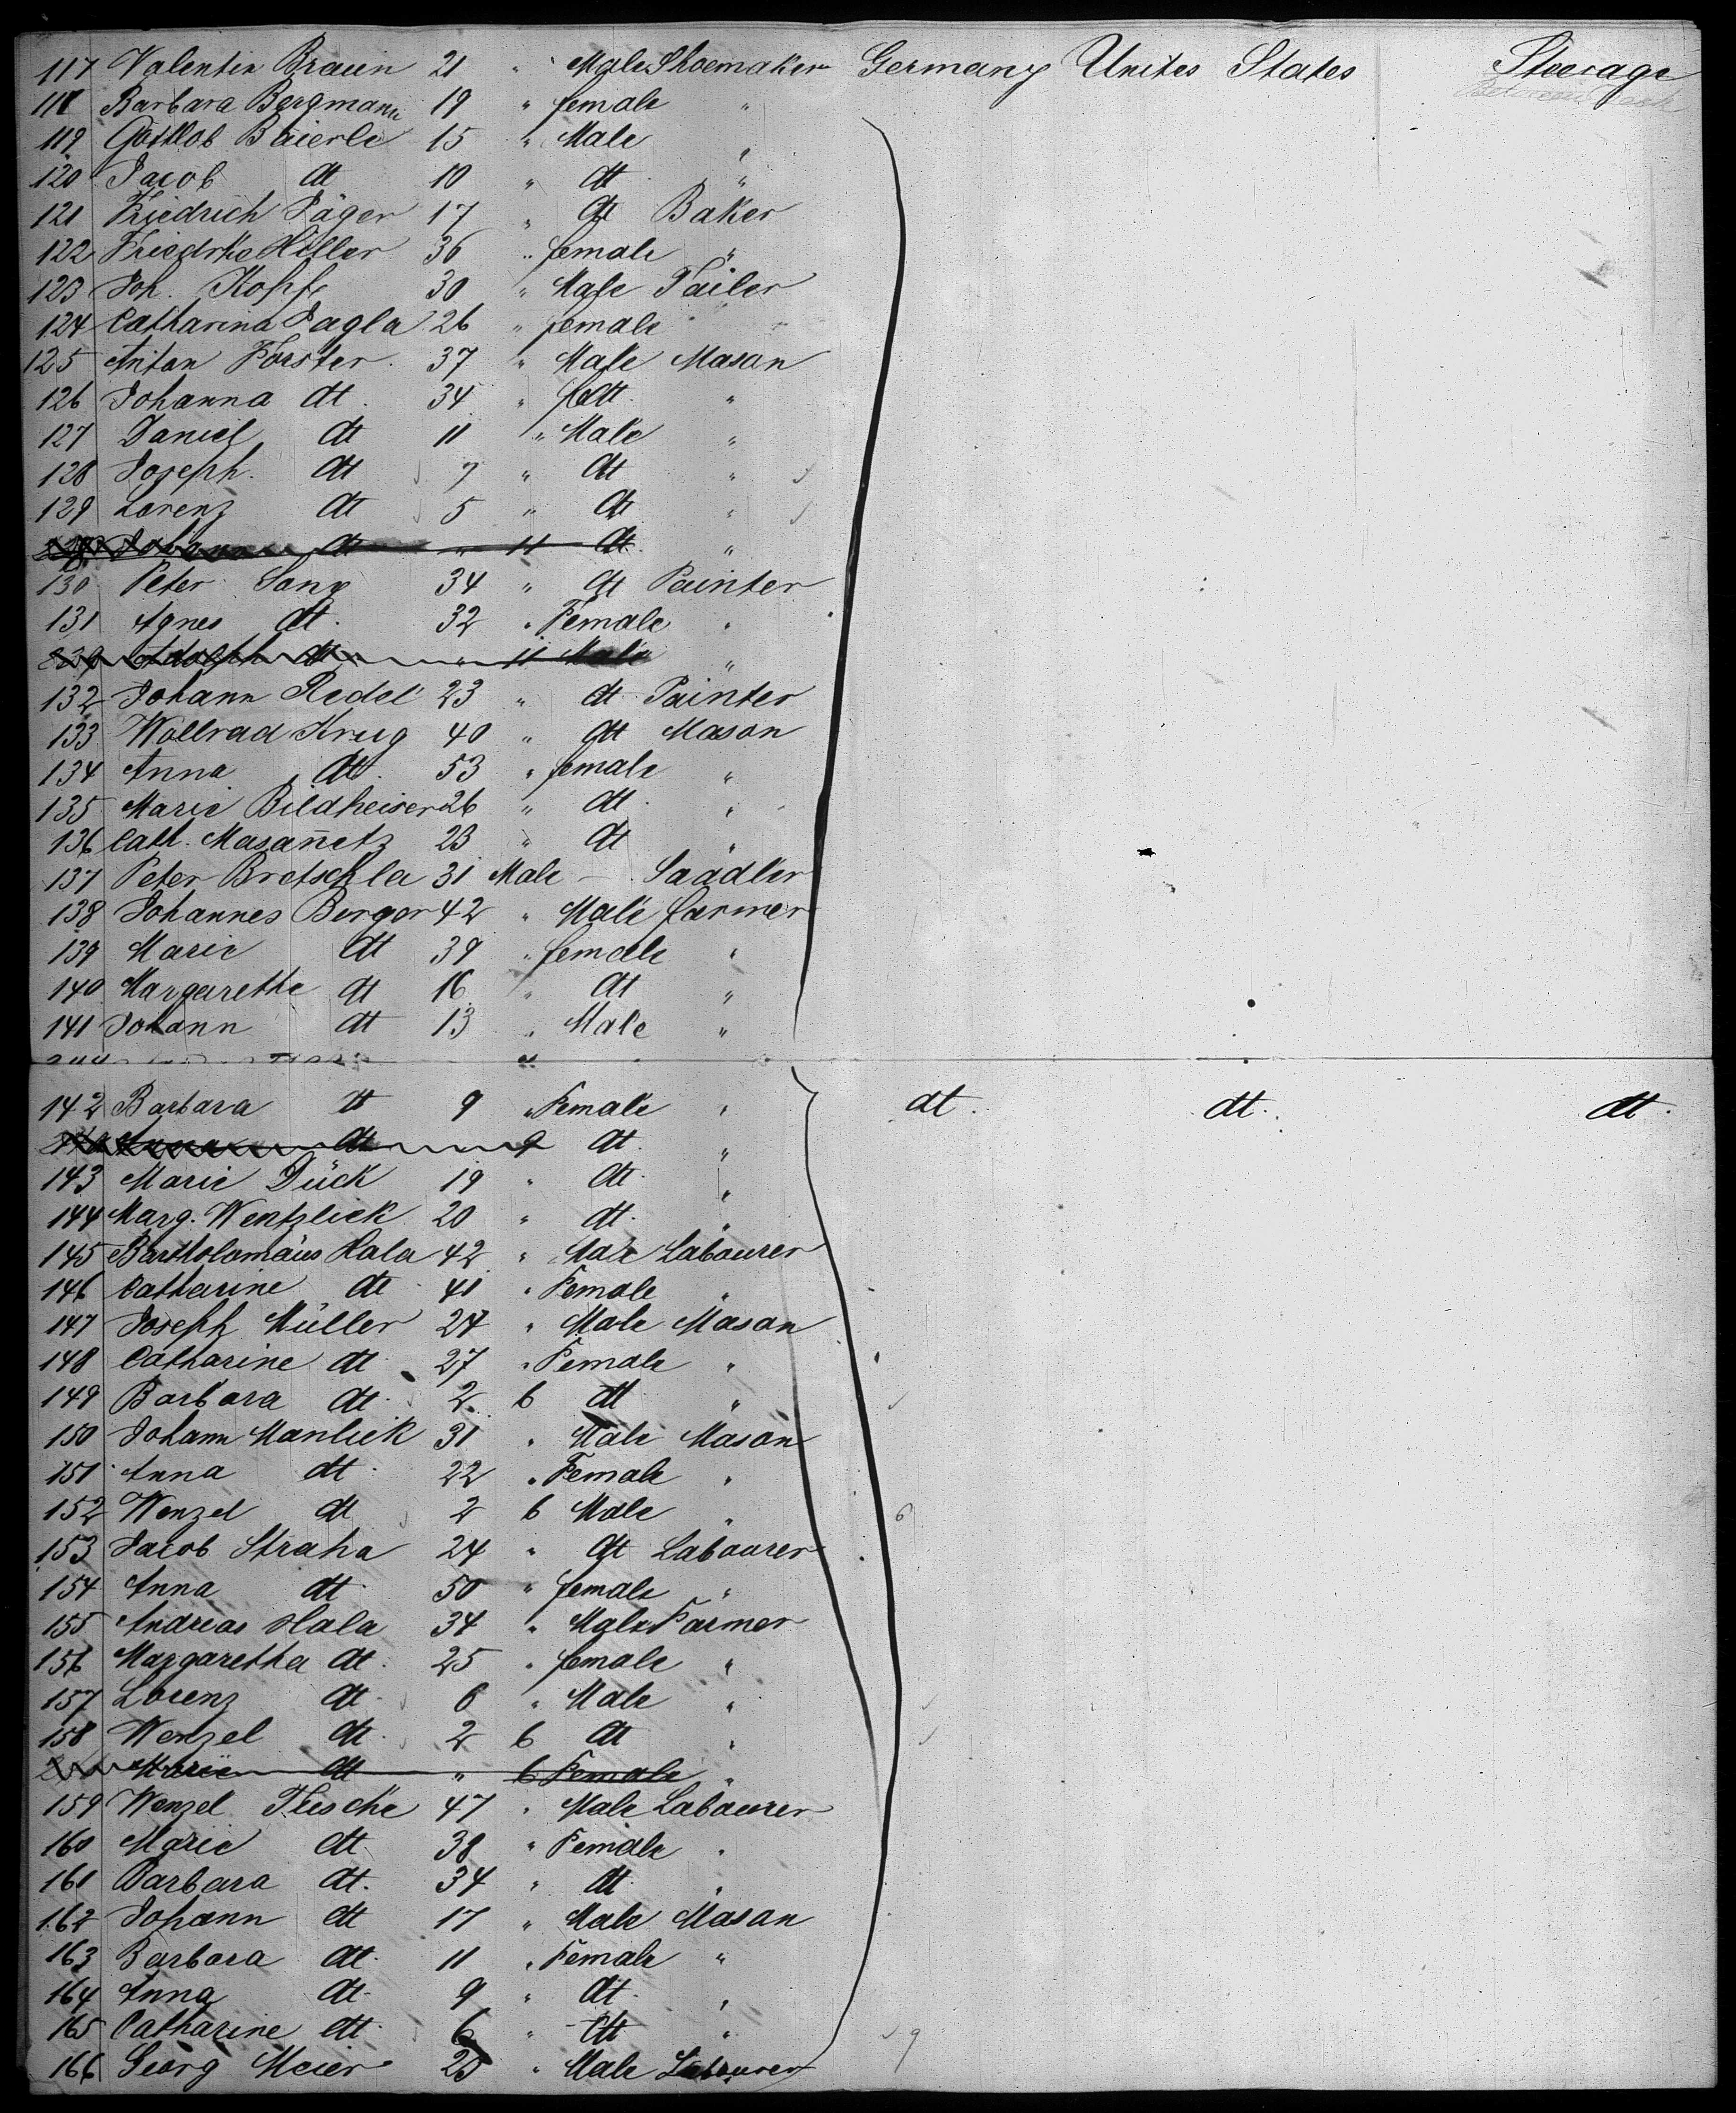 117 Valentin Braun 21 " Male Shoemaker Germany Unites States Steerage
118 Barbara Bergmann 19 " female " Between Deck
119 Gottlob Baierle 15 " Male "
120 Jacob dt 10 " dt "
121 Friedrich Jäger 17 " dt Baker
122 Friedrke Heller 36 " female "
123 Joh. Kopf 30 " Male Tailer
124 Catharina Jagla 26 " female "
125 Anton Forster 37 " Male Mason
126 Johanna dt 34 " fedt "
127 Daniel dt 11 " Male "
128 Joseph dt 7 " dt "
129 Lorenz dt 5 " dt "
Johann dt " 11 dt "
130 Peter Lang 34 " dt Painter
131 Agnes dt 32 " Female "
Adolph dt " 11 Male "
132 Johann Redel 23 " dt Painter
133 Wollrad Krug 40 " dt Mason
134 Anna dt 53 " female "
135 Marie Bildheiser 26 " dt "
136 Cath. Masan̄etz 23 " dt "
137 Peter Bretschla 31 Male — Saadler
138 Johannes Berger 42 " Male farmer
139 Marie dt 39 " female "
140 Margarethe dt 16 " dt "
141 Johann dt 13 " Male "
142 Barbara dt 9 " Female " dt. dt. dt.
dt 9 dt "
143 Marie Dück 19 " dt "
144 Marg. Wentzlick 20 " dt "
145 Bartholomäus Hala 42 " Male Labourer
146 Catharine dt 41 " Female "
147 Joseph Müller 27 " Male Mason
148 Catharine dt 27 " Female "
149 Barbara dt 2 6 dt "
150 Johann Manlick 31 " Male Mason
151 Anna dt 22 " Female "
152 Wenzel dt 2 6 Male " 6
153 Jacob Straha 24 " dt Labourer
154 Anna dt 50 " female "
155 Andreas Hala 34 " Male Farmer
156 Margaretha dt 25 " female "
157 Lorenz dt 6 " Male "
158 Wenzel dt 2 6 dt "
Marie dt " 6 Female "
159 Wenzel 47 " Male Labourer
160 Marie dt 38 " Female "
161 Barbara dt. 34 " dt "
162 Johann dt 17 " Male Mason
163 Barbara dt 11 " Female "
164 Anna dt 9 " dt "
165 Catharine dt 6 " dt " 9
166 Georg Meier 25 " Male Labourer